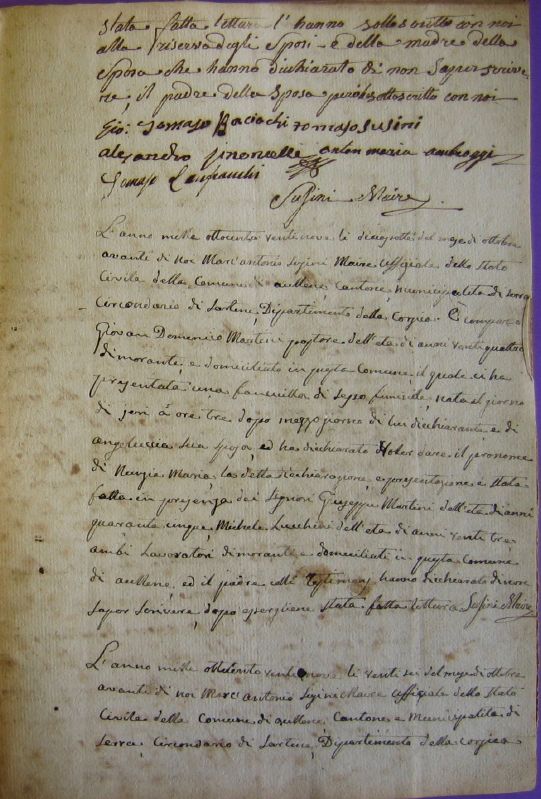 stata fatta lettura l'hanno sottoscritto con noi
alla riserva degli Sposi e della madre della
Sposa che hanno dichiarato di non Saper scrive
re, il padre della Sposa però sottoscritto con noi
Gio: Tomaso Baciochi Tomaso Susini
alejandro anton maria
Tomaso Lanfranchi
Susini Maire
L'anno mille ottocento venti nove li diciapotto del mese di ottobre
avanti di noi Marc'antonio Susini Maire uffiziale dello Stato
Civile della Comune d'aullene, Cantone, e municipalità di Serra
Circondario di Sartene, Dipartimento della Corsica È comparso
Giovan Domenico Martini pastore dell'età di anni venti quattro
dimorante, e domiciliato in questa Comune, il quale ci ha
presentata una fanciulla di sesso feminile, nata il giorno
di jeri à ore tre dopo mezzo giorno di lui dichiarante e di
angeluccia sua sposa, ed ha dichiarato Voler dare il pronome
di Nunzia Maria, la detta dichiarazione, e presentazione e stata
fatta in presenza dei Signori Giuseppe Martini dell'età di anni
quaranta cinque, Michele Lucchini dell'età di anni venti tre
ambi Lavoratori dimoranti e domiciliati in questa Comune
di aullene, ed il padre colli Testimonj hanno dichiarato di non
saper scrivere, dopo essergliene stata fatta lettura Susini Maire
L'anno mille ottocento venti nove li venti sei del mese di ottobre
avanti di noi Marc'antonio Susini Maire uffiziale dello Stato
Civile della Comune di aullene, Cantone e Municipalità di
Serra, Circondario di Sartene, Dipartimento della Corsica